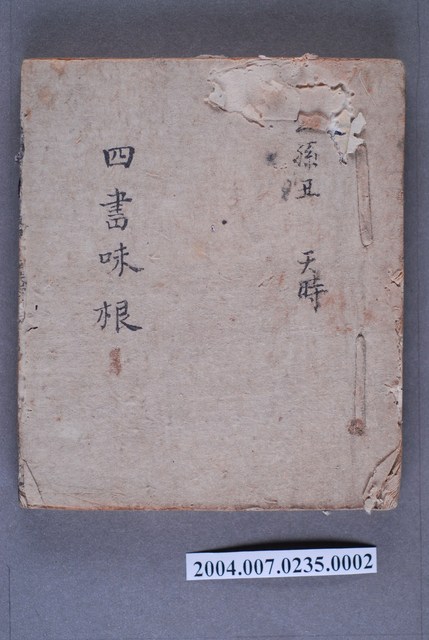 孫丑 天時
四書味根
2004.007.0235.0002